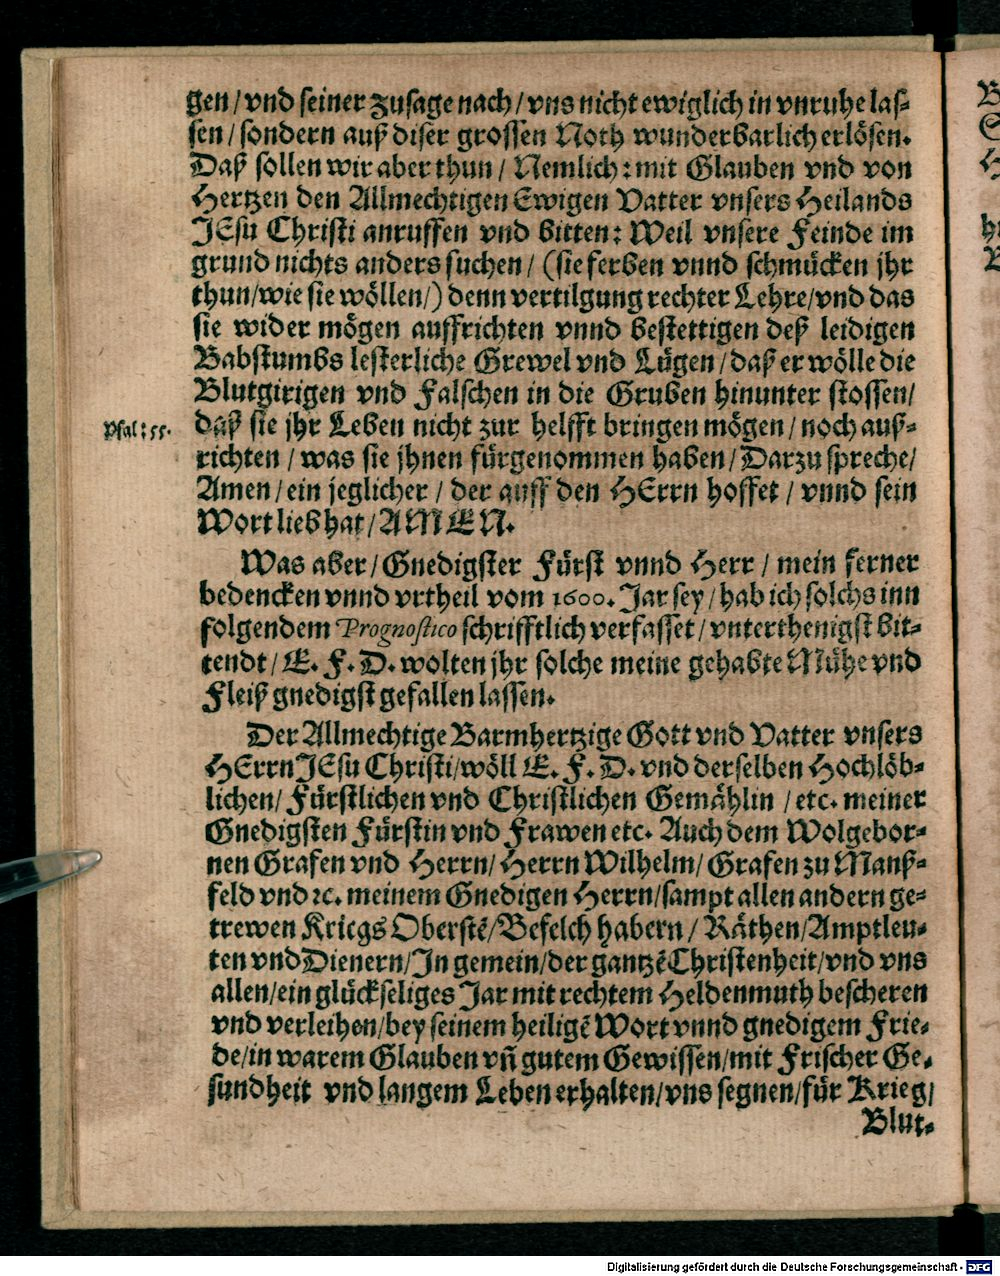 gen/ vnd seiner zusage nach/ vns nicht ewiglich in vnruhe las-
sen/ sondern auß diser grossen Noth wunderbarlich erlösen.
Daß sollen wir aber thun/ Nemlich: mit Glauben vnd von
Hertzen den Allmechtigen Ewigen Vatter vnsers Heilands
JEsu Christi anruffen vnd bitten: Weil vnsere Feinde im
grund nichts anders suchen/ (sie ferben vnnd schmücken jhr
thun/ wie sie wöllen/) denn vertilgung rechter Lehre/ vnd das
sie wider mögen auffrichten vnnd bestettigen deß leidigen
Babstumbs lesterliche Grewel vnd Lügen/ daß er wölle die
Blutgirigen vnd Falschen in die Gruben hinunter stossen/
Psal: 55. daß sie jhr Leben nicht zur helfft bringen mögen/ noch auß-
richten/ was sie jhnen fürgenommen haben/ Darzu spreche/
Amen/ ein jeglicher/ der auff den HErrn hoffet/ vnnd sein
Wort lieb hat/ AMEN.
Was aber/ Gnedigster Fürst vnnd Herr/ mein ferner
bedencken vnnd vrtheil vom 1600. Jar sey/ hab ich solchs inn
folgendem Prognostico schrifftlich verfasset/ vnterthenigst bit-
tendt/ E. F. D. wolten jhr solche meine gehabte Mühe vnd
Fleiß gnedigst gefallen lassen.
Der Allmechtige Barmhertzige Gott vnd Vatter vnsers
HErrn JEsu Christi/ wöll E. F. D. vnd derselben Hochlöb-
lichen/ Fürstlichen vnd Christlichen Gemählin/ etc. meiner
Gnedigsten Fürstin vnd Frawen etc. Auch dem Wolgebor-
nen Grafen vnd Herrn/ Herrn Wilhelm/ Grafen zu Manß-
feld vnd ꝛc. meinem Gnedigen Herrn/ sampt allen andern ge-
trewen Kriegs Oberstē/ Befelch habern/ Räthen/ Amptleu-
ten vnd Dienern/ In gemein/ der gantzē Christenheit/ vnd vns
allen/ ein glückseliges Jar mit rechtem Heldenmuth bescheren
vnd verleihen/ bey seinem heiligē Wort vnnd gnedigem Frie-
de/ in warem Glauben vñ gutem Gewissen/ mit Frischer Ge-
sundheit vnd langem Leben erhalten/ vns segnen/ für Krieg/
Blut-
Digitalisierung gefördert durch die Deutsche Forschungsgemeinschaft - DFG